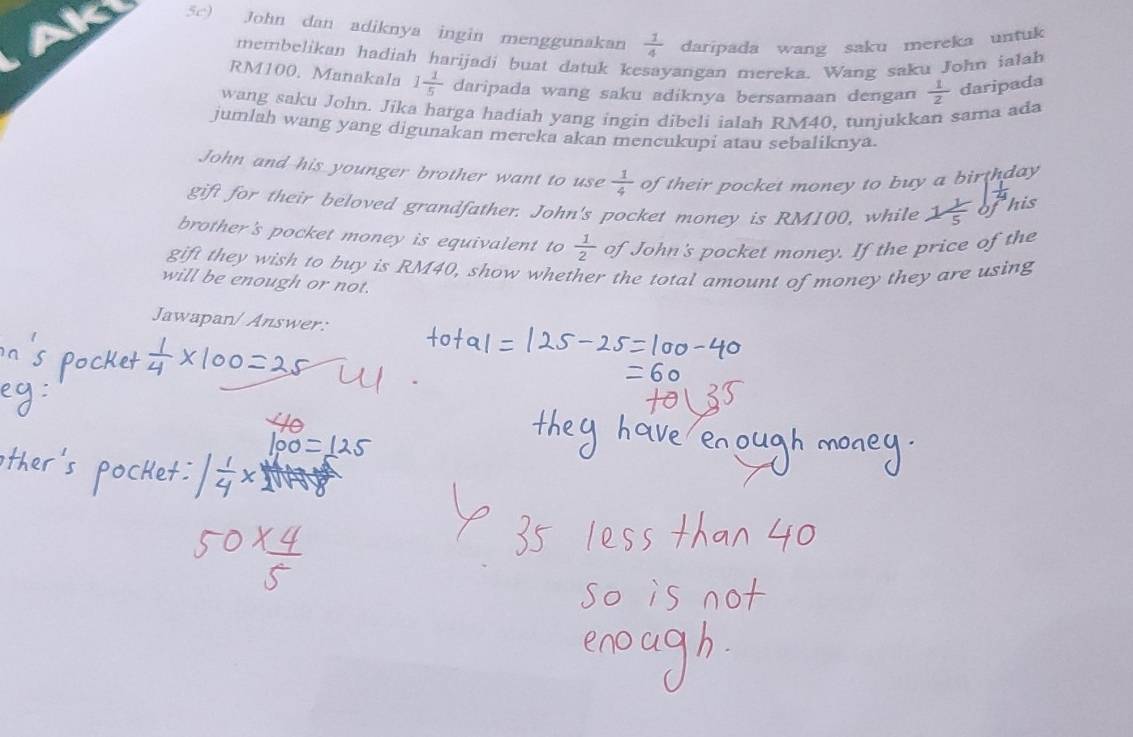 5c) John dan adiknya ingin menggunakan 1/4 daripada wang saku mereka untuk
membelikan hadiah harijadi buat datuk kesayangan mereka. Wang saku John ialah
RM100. Manakala 1 1/5 daripada wang saku adiknya bersamaan dengan 1/2 daripada
wang saku John. Jika harga hadiah yang ingin dibeli ialah RM40, tunjukkan sama ada
jumlah wang yang digunakan mereka akan mencukupi atau sebaliknya.
John and his younger brother want to use 1/4 of their pocket money to buy a birthday
gift for their beloved grandfather. John's pocket money is RM100, while 1 1/5 of his
1 1/4
brother's pocket money is equivalent to 1/2 of John's pocket money. If the price of the
gift they wish to buy is RM40, show whether the total amount of money they are using
will be enough or not.
Jawapan/ Answer:
n's pocket 1/4 × 100 = 25
eg:
total = 125 - 25 = 100 - 40
= 60
35
they have enough money.
40
100 = 125
ther's pocket: 1 1/4 ×
50 × 4/5
35 less than 40
so is not
enough.